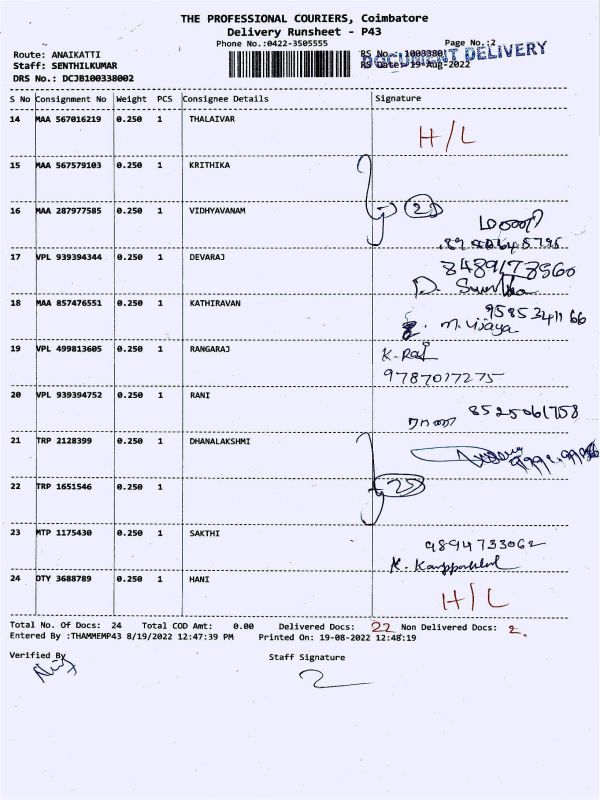 THE PROFESSIONAL COURIERS, Coimbatore
Delivery Runsheet - P43
Phone No.:0422-3505555
Page No.:2
Route: ANAIKATTI
RS No.: 10033801
DOCUMENT DELIVERY
Staff: SENTHILKUMAR
RS Date: 19-Aug-2022
DRS No.: DCJB100338002
S No Consignment No Weight PCS Consignee Details Signature
14 MAA 567016219 0.250 1 THALAIVAR H/L
15 MAA 567579103 0.250 1 KRITHIKA
16 MAA 287977585 0.250 1 VIDHYAVANAM
17 VPL 939394344 0.250 1 DEVARAJ
18 MAA 857476551 0.250 1 KATHIRAVAN
m. vijaya
19 VPL 499813605 0.250 1 RANGARAJ K-Raj
9787017275
20 VPL 939394752 0.250 1 RANI
8525061758
21 TRP 2128399 0.250 1 DHANALAKSHMI
22 TRP 1651546 0.250 1
23 MTP 1175430 0.250 1 SAKTHI
9894733062
24 OTY 3688789 0.250 1 HANI H/L
Total No. Of Docs: 24 Total COD Amt: 0.00 Delivered Docs: 22 Non Delivered Docs: 2.
Entered By :THAMMEMP43 8/19/2022 12:47:39 PM Printed On: 19-08-2022 12:48:19
Verified By Staff Signature